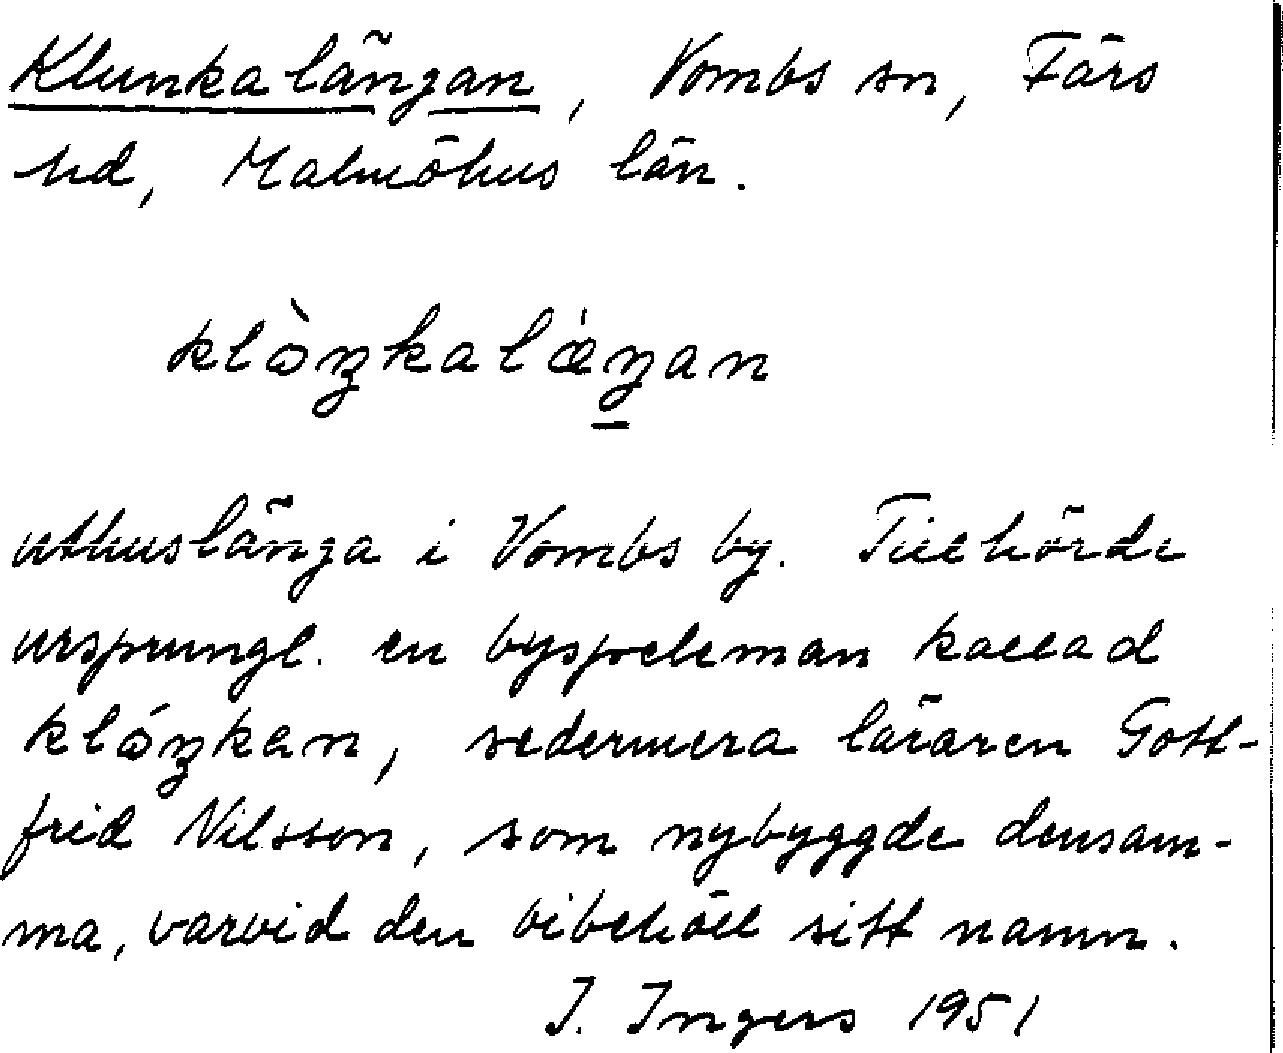 Klunkalängan, Vombs sn, Färs
hd, Malmöhus län.
klòŋkalǽŋan
uthuslänga i Vombs by. Tillhörde
ursprungl. en byspeleman kallad
klóŋkan, sedermera läraren Gott-
frid Nilsson, som nybyggde densam-
ma, varvid den bibehöll sitt namn.
I. Ingers 1951